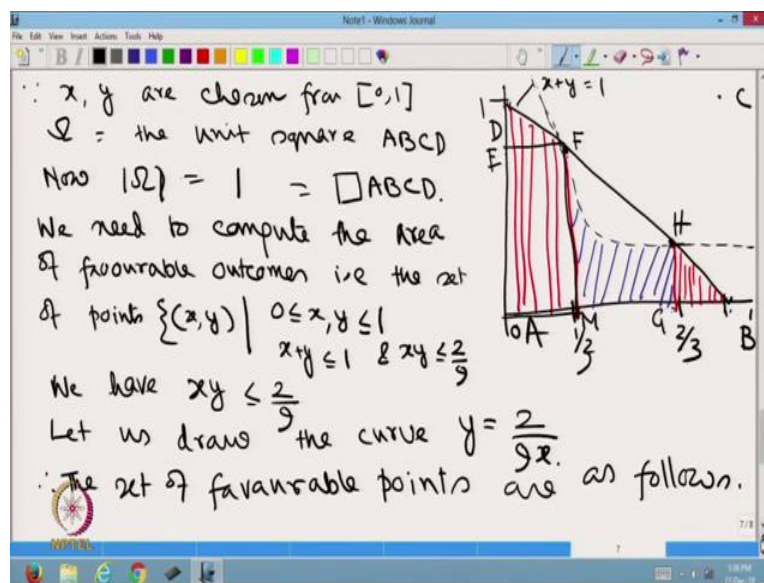 Note1 - Windows Journal
File Edit View Insert Actions Tools Help
∵ x, y are chosen from [0,1]
Ω = the unit square ABCD
Now |Ω| = 1 = □ABCD.
We need to compute the area
of favourable outcomes i.e the set
of points {(x,y) | 0 ≤ x, y ≤ 1
x+y ≤ 1 & xy ≤ 2/9
We have xy ≤ 2/9
Let us draw the curve y = 2/9x.
∴ The set of favourable points are as follows.
1
x+y=1
C
D
E
F
H
0 A
M
G
B
1/3
2/3
1
NPTEL
7/8
7